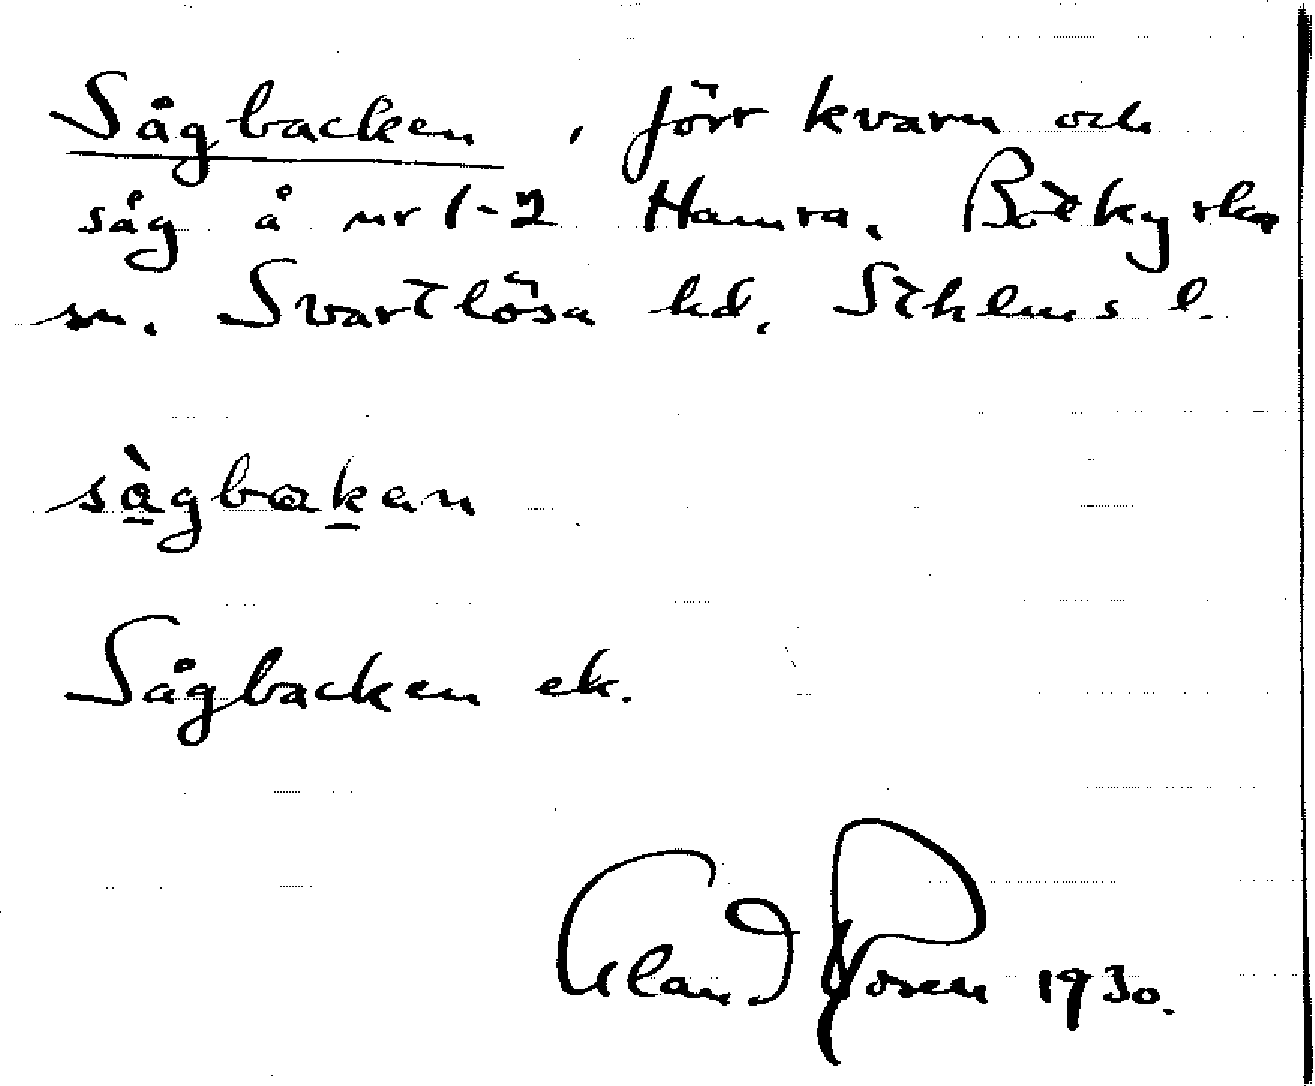 Sågbacken, förr kvarn och
såg å nr 1-2 Hamra. Botkyrka
sn. Svartlösa hd. Sthlms l.
sàgbakan
Sågbacken ek.
Eland Rosen 1930.